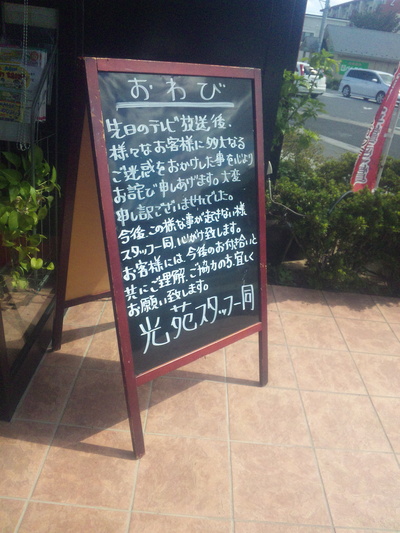 おわび
先日のテレビ放送後、
様々なお客様に多大なる
ご迷惑をおかけした事を心より
お詫び申しあげます。大変
申し訳ございませんでした。
今後、この様な事が起きない様
スタッフ一同、心がけ致します。
お客様には、今後のお付き合いと
共にご理解、ご協力の方、宜しく
お願い致します。
光苑スタッフ一同